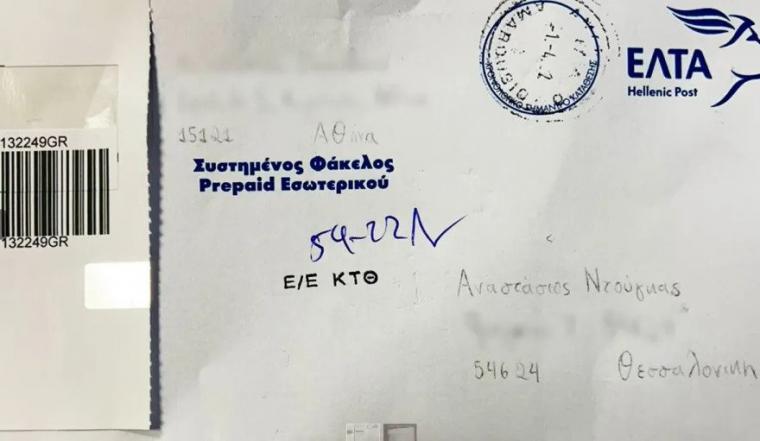 132249GR
132249GR
ΕΛΤΑ
Hellenic Post
15121 Αθήνα
Συστημένος Φάκελος
Prepaid Εσωτερικού
54-22Λ
Ε/Ε ΚΤΘ
Αναστάσιος Ντούγκας
54624 Θεσσαλονίκη